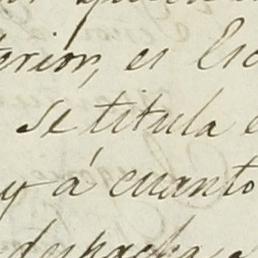 terior, es Esc
se titula e
y á cuanto
despacha